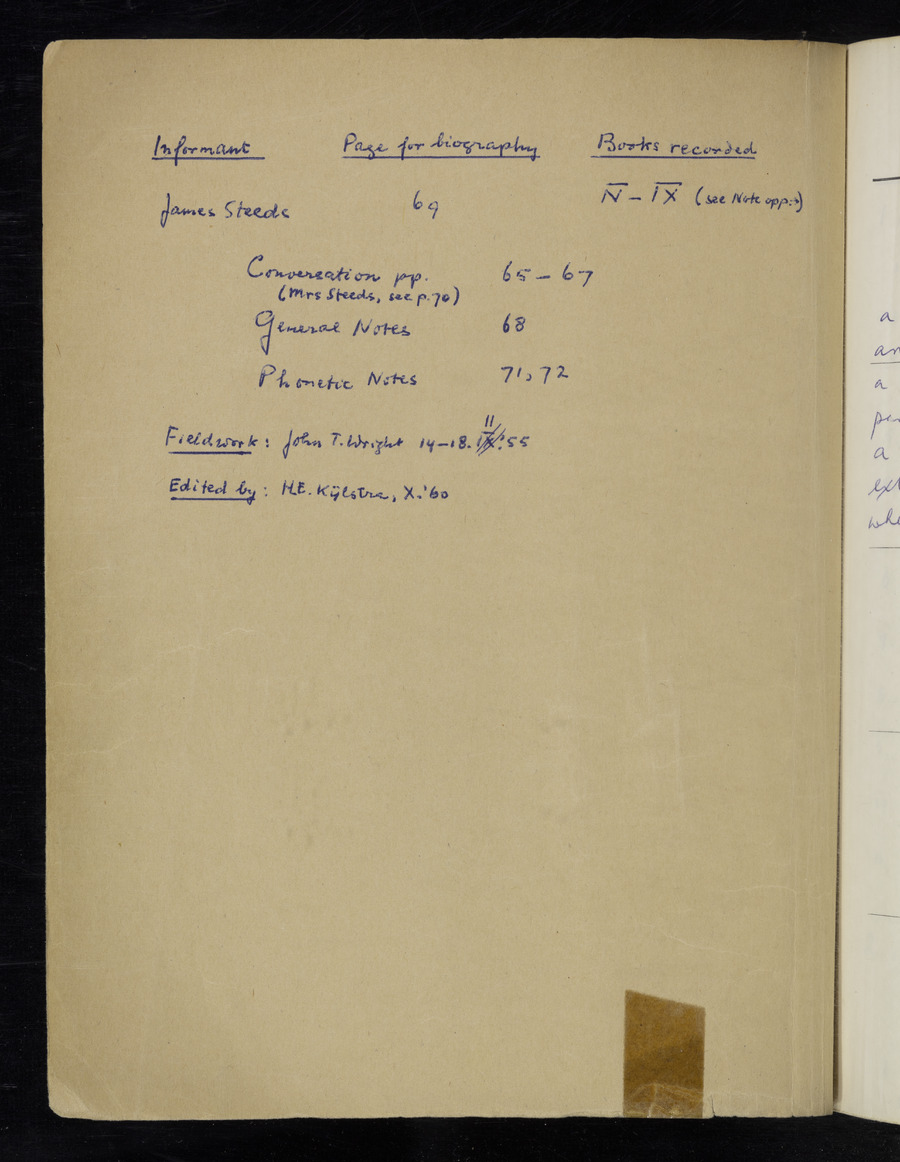 Informant Page for biography Books recorded
James Steeds 69 IV – IX (see Note opp:→)
Conversation pp. 65 – 67
(Mrs Steeds, see p. 70)
General Notes 68
Phonetic Notes 71, 72
II
Fieldwork: John T. Wright 14–18. IX.'55
Edited by: H.E. Kijlstra, X.'60
a
an
a
a
ext
whe